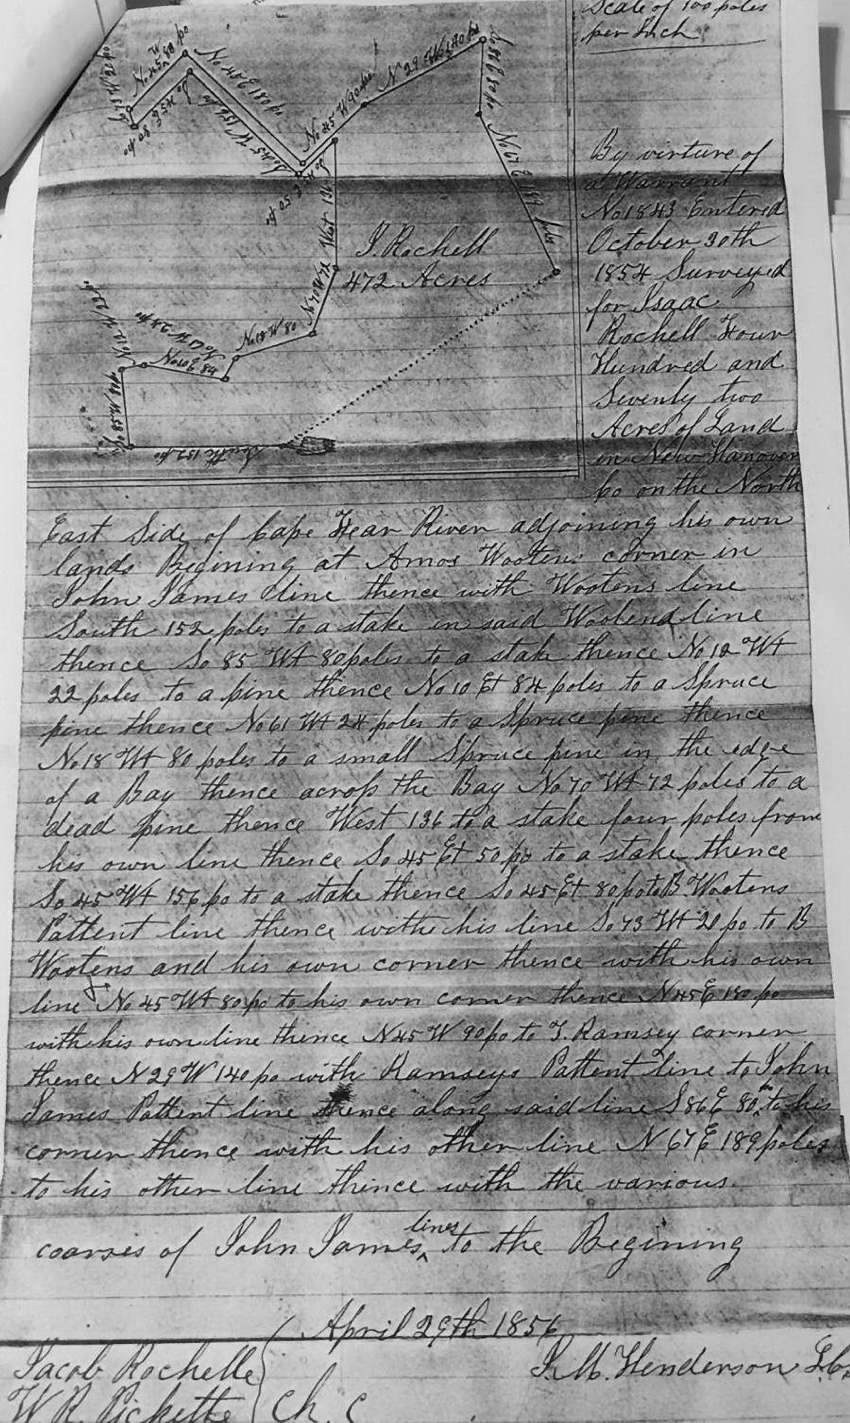 Scale of 100 poles
per Inch
No 45 W 80 po
No 45 E 180 po
No 45 W 90 po
N 29 W 140 po
So 86 E 80 po
N 67 E 189 poles
So 45 E 80 po
So 45 W 156 po
So 45 E 50 po
West 136
No 70 W 72
No 18 W 80
No 61 W 24 po
No 10 E 84
No 12 W 22 po
So 85 W 80 po
South 152 po
I. Rochell
472 Acres
By virture of
a Warrant
No 1843 Entered
October 30th
1854 Surveyed
for Isaac
Rochell Four
Hundred and
Seventy two
Acres of Land
in New Hanover
Co on the North
East Side of Cape Fear River adjoining his own
lands Begining at Amos Wootens corner in
John James line thence with Wootens line
South 152 poles to a stake in said Wootens line
thence So 85 Wt 80 poles to a stake thence No 12 Wt
22 poles to a pine thence No 10 Et 84 poles to a Spruce
pine thence No 61 Wt 24 poles to a Spruce pine thence
No 18 Wt 80 poles to a small Spruce pine in the edge
of a Bay thence across the Bay No 70 Wt 72 poles to a
dead pine thence West 136 to a stake four poles from
his own line thence So 45 Et 50 po to a stake thence
So 45 Wt 156 po to a stake thence So 45 Et 80 po to B Wootens
Pattent line thence withe his line So 73 Wt 20 po to B
Wootens and his own corner thence with his own
line No 45 Wt 80 po to his own corner thence N 45 E 180 po
with his own line thence N 45 W 90 po to T. Ramsey corner
thence N 29 W 140 po with Ramseys Pattent line to John
James Pattent line thence along said line S 86 E 80 po to his
corner thence with his other line N 67 E 189 poles
to his other line thence with the various
coarses of John James lines to the Begining
April 29th 1856
Jacob Rochelle
W R Pickette
Ch. C
J. M. Henderson